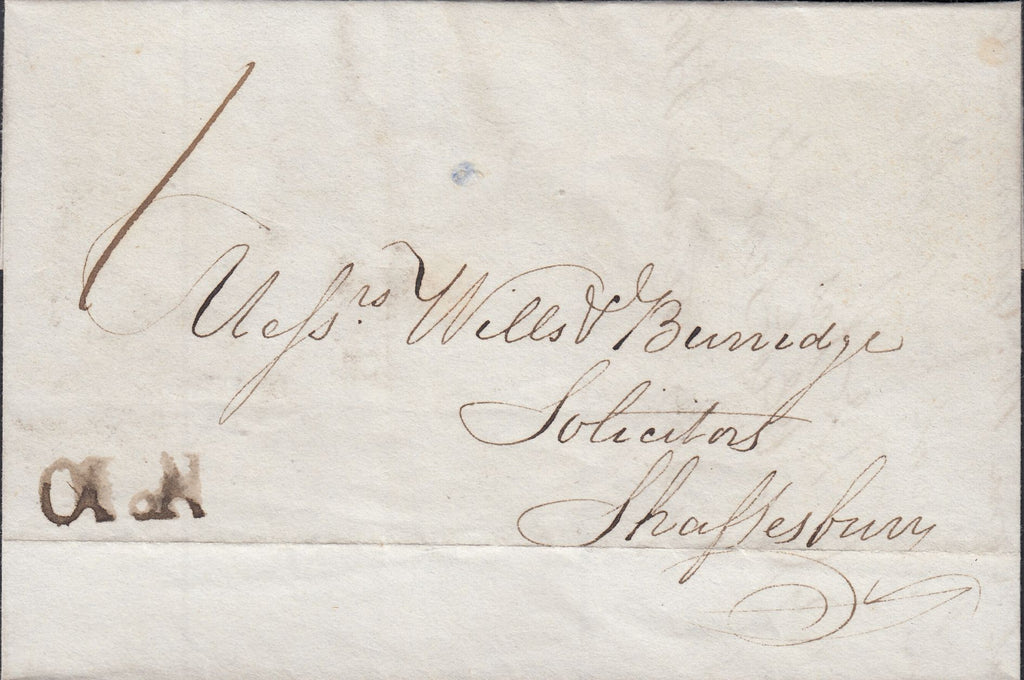 1
Messrs Wills & Burridge
Solicitors
Shaftesbury